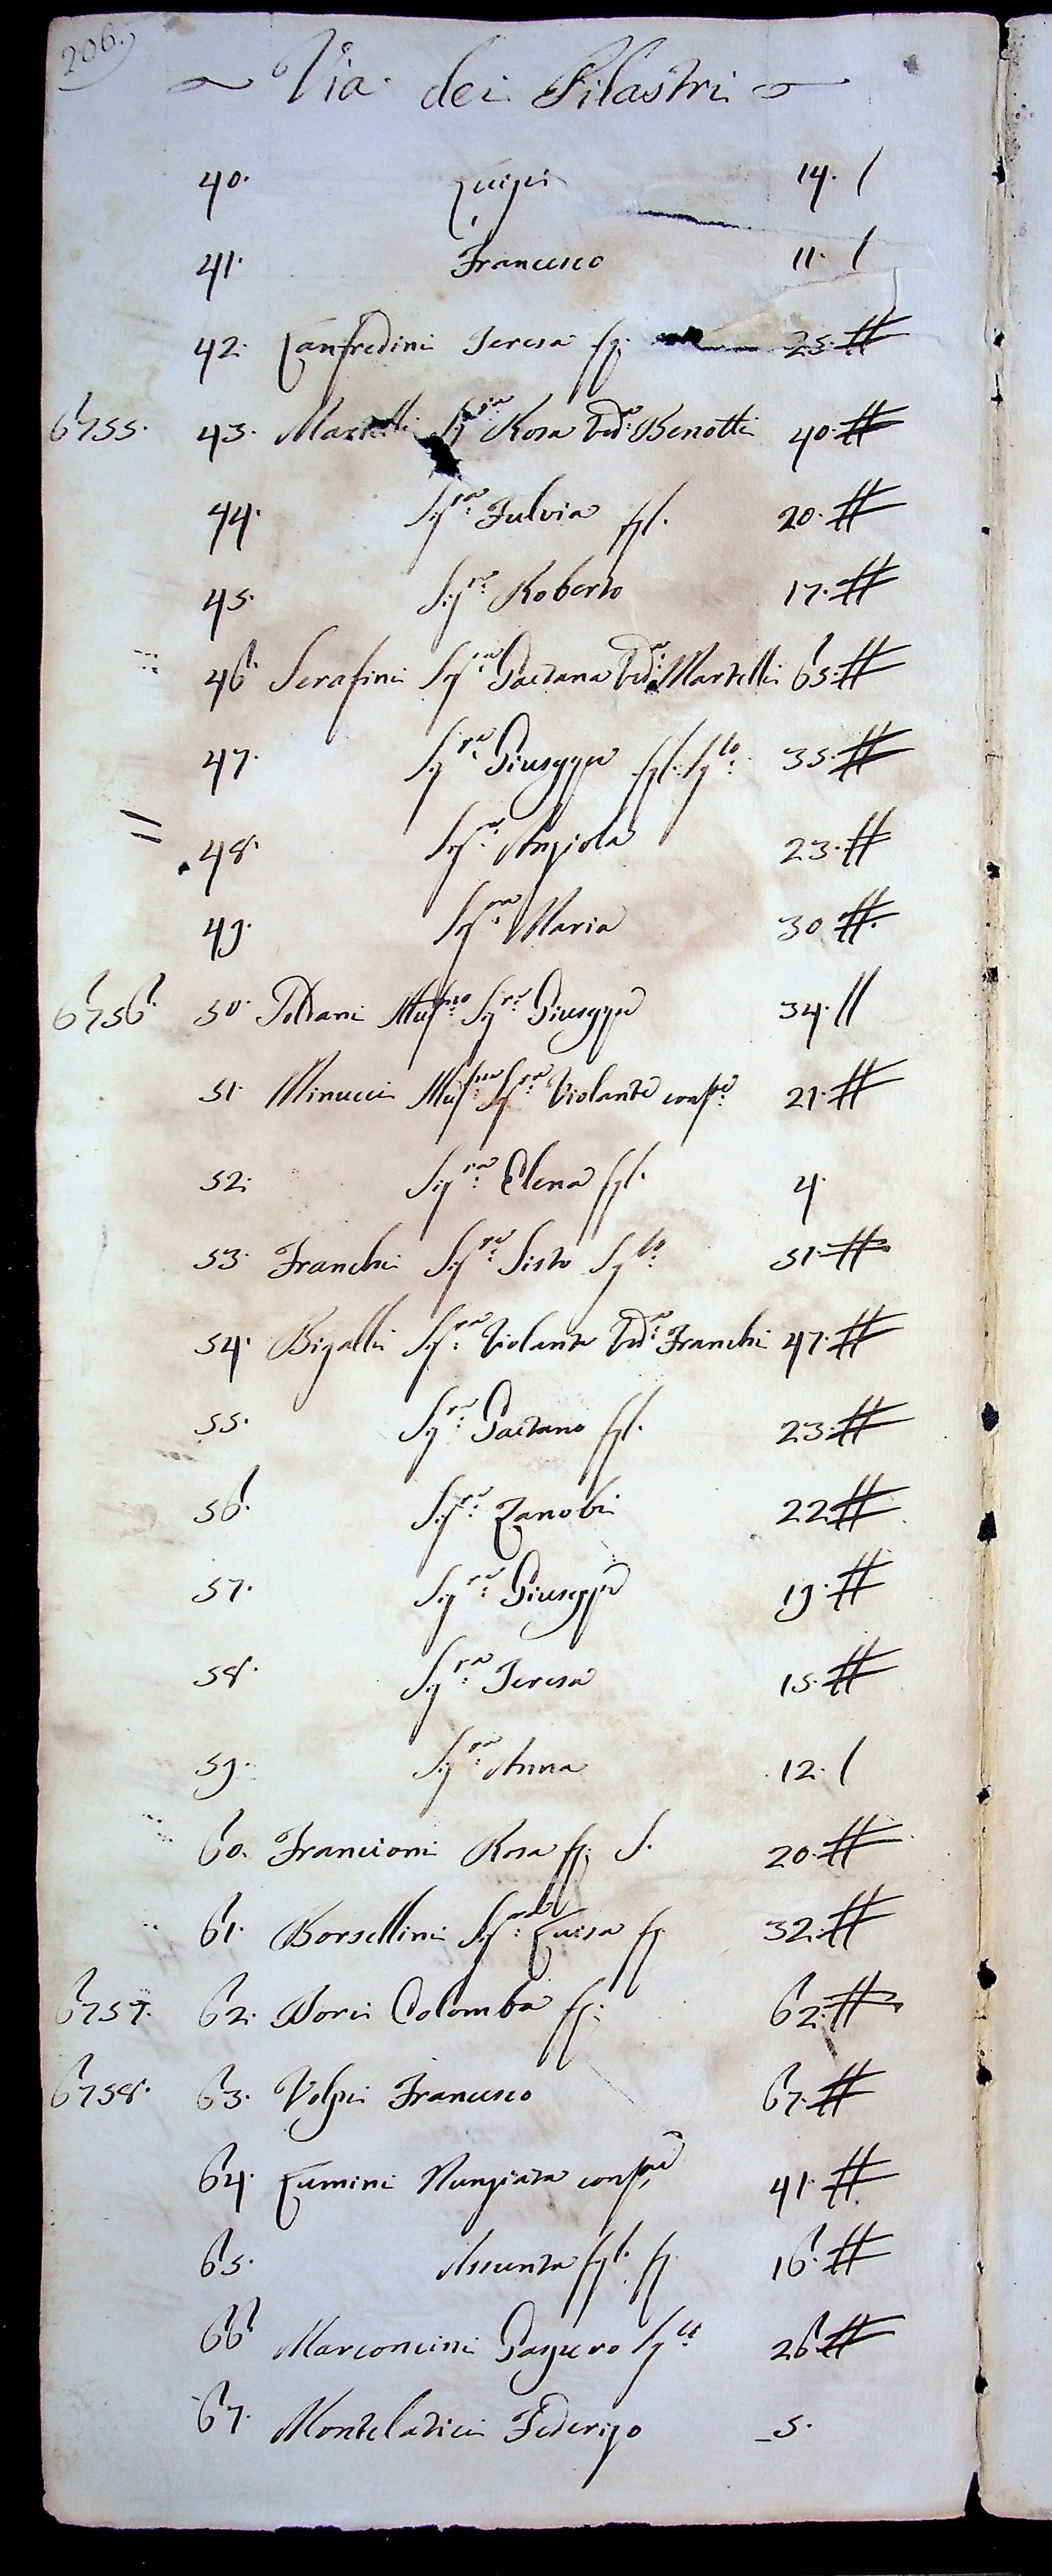 206.
Via dei Pilastri
40. Luigi 14. /
41. Francesco 11. /
42. Lanfredini Teresa 25. #
6755. 43. Martelli Sig.ra Rosa Ved.a Benotti 40. #
44. Sig.ra Fulvia figl. 20. #
45. Sig.re Roberto 17. #
46. Serafini Sig.ra Gaetana Ved.a Martelli 65. #
47. Sig.re Giuseppe figl. Sp.to 35. #
48. Sig.ra Angiola 23. #
49. Sig.ra Maria 30 #.
6756. 50. Illus.mo Sig.re Giuseppe 34. //
51. Minucci Illus.ma Sig.ra Violante cons.te 21. #
52. Sig.ra Elena figl. 4.
53. Franchi Sig.re Sisto Sp.to 51. #
54. Bigalli Sig.ra Violante Ved.a Franchi 47. #
55. Sig.re Gaetano figl. 23. #
56. Sig.re Zanobi 22 #
57. Sig.re Giuseppe 19. #
58. Sig.ra Teresa 15. #
59. Sig.ra Anna 12. /
60. Francioni Rosa S. 20. #
61. Borsellini Sig.ra Luisa 32. #
6757. 62. Dori Colomba 62. #
6758. 63. Volpi Francesco 67. #
64. Lumini Nunziata cons.te 41. #
65. Assunta figl. 16. #
66. Marconcini Gaspero Sp.to 26 #
67. Montelatici Federigo 5.